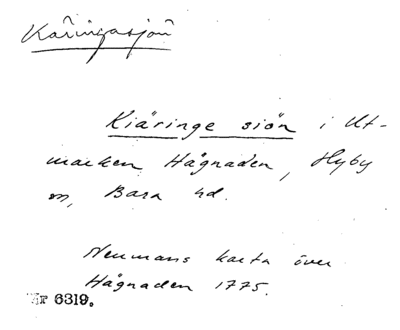 Käringasjön
Kiäringe siön i Ut-
marken Hågnaden, Hyby
sn, Bara hd.
Neumans karta över
Hågnaden 1775.
Nr 6319.